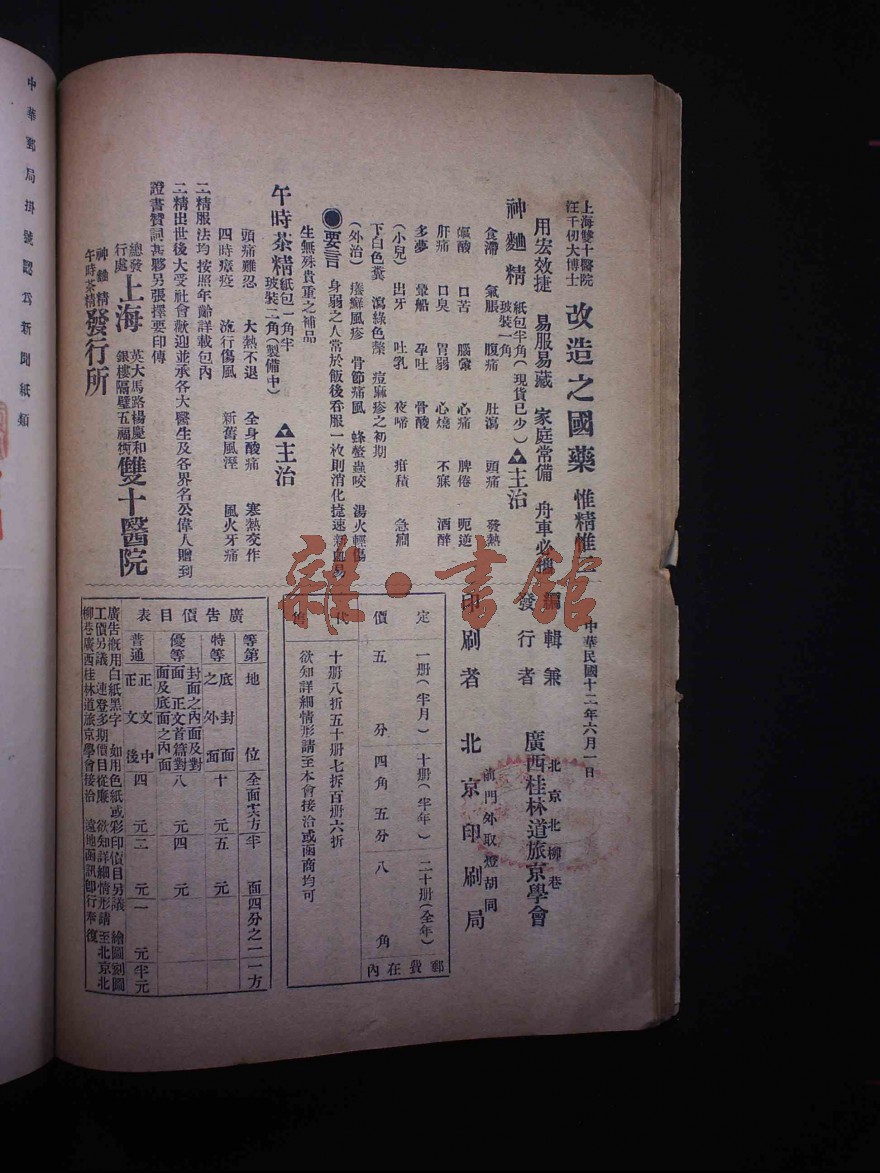 上海雙十醫院
汪千仞大博士
改造之國藥
惟精惟
用宏效捷 易服易藏 家庭常備 舟車必
神麯精
紙包半角(現貨已少)
玻裝一角
主治
食滯 氣脹 腹痛 肚瀉 頭痛 發熱
嘔酸 口苦 腦暈 心痛 脾倦 呃逆
肝痛 口臭 胃弱 心燒 不寐 酒醉
多夢 暈船 孕吐 骨酸
(小兒) 出牙 吐乳 夜啼 疳積 急癎
下白色糞 瀉綠色藥 痘麻疹之初期
(外治) 癢癬風疹 骨節痛風 蜂螫蟲咬 湯火輕傷
●要言 身弱之人常於飯後吞服一枚則消化捷速新血易
生無殊貴重之補品
午時茶精
紙包一角半
玻裝二角(製備中)
主治
頭痛難忍 大熱不退 全身酸痛 寒熱交作
四時瘴疫 流行傷風 新舊風溼 風火牙痛
二精服法均按照年齡詳載包內
二精出世後大受社會歡迎並承各大醫生及各界名公偉人贈到
證書贊詞甚夥另張擇要印傳
總發
行處
上海
英大馬路楊慶和
銀樓隔壁五福衖
雙十醫院
神麯精
午時茶精
發行所
中華民國十二年六月一日
編輯兼
發行者
北京北柳巷
廣西桂林道旅京學會
印刷者
前門外取燈胡同
北京印刷局
定價
一册(半月) 十册(半年) 二十册(全年) 郵費在內
五分 四角五分 八角
代售
十册八折五十册七折百册六折
欲知詳細情形請至本會接洽或函商均可
廣告價目表
等第 地位 全面 半面 四分之一 一方
特等 底封面之外面 十元 五元
優等 封面之內面及對面正文首篇對面及底面之內面 八元 四元
普通 正文中正文後 四元 二元 一元 半元
廣告概用白紙黑字 如用色紙或彩印價目另議 繪圖刻圖
工價另議 連登多期價目從廉 欲知詳細情形請至北京北
柳巷廣西桂林道旅京學會接洽 遠地函訊卽行奉復
中華郵局掛號認爲新聞紙類
雜·書館